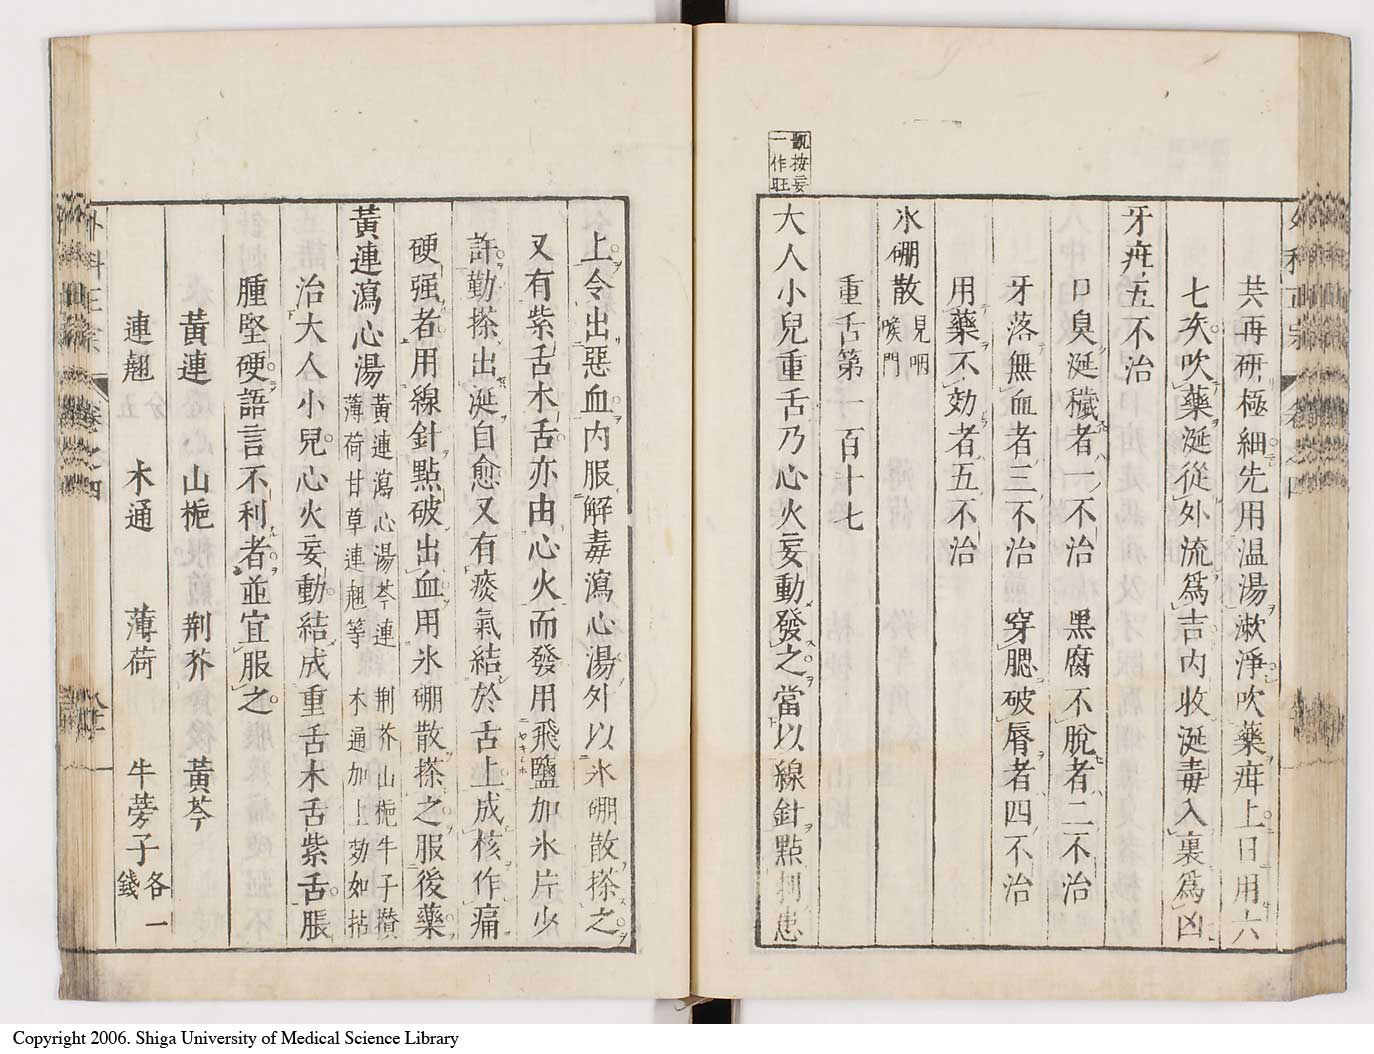 外科正宗 卷之四
共再研極細先用温湯漱淨吹藥疳上日用六
七次吹藥涎從外流爲吉内收涎毒入裏爲凶
牙疳五不治
口臭涎穢者一不治 黑腐不脫者二不治
牙落無血者三不治 穿腮破唇者四不治
用藥不効者五不治
氷硼散 見咽喉門
重舌第一百十七
凱按妄一作旺
大人小兒重舌乃心火妄動發之當以線針點刺患
上令出惡血内服解毒瀉心湯外以氷硼散搽之
又有紫舌木舌亦由心火而發用飛鹽加氷片少
許勤搽出涎自愈又有痰氣結於舌上成核作痛
硬强者用線針點破出血用氷硼散搽之服後藥
黃連瀉心湯 黃連瀉心湯芩連 荆芥山梔牛子攢 薄荷甘草連翹等 木通加上効如拈
治大人小兒心火妄動結成重舌木舌紫舌脹
腫堅硬語言不利者並宜服之
黃連 山梔 荆芥 黃芩
連翹 木通 薄荷 牛蒡子 各一錢
外科正宗 卷之四